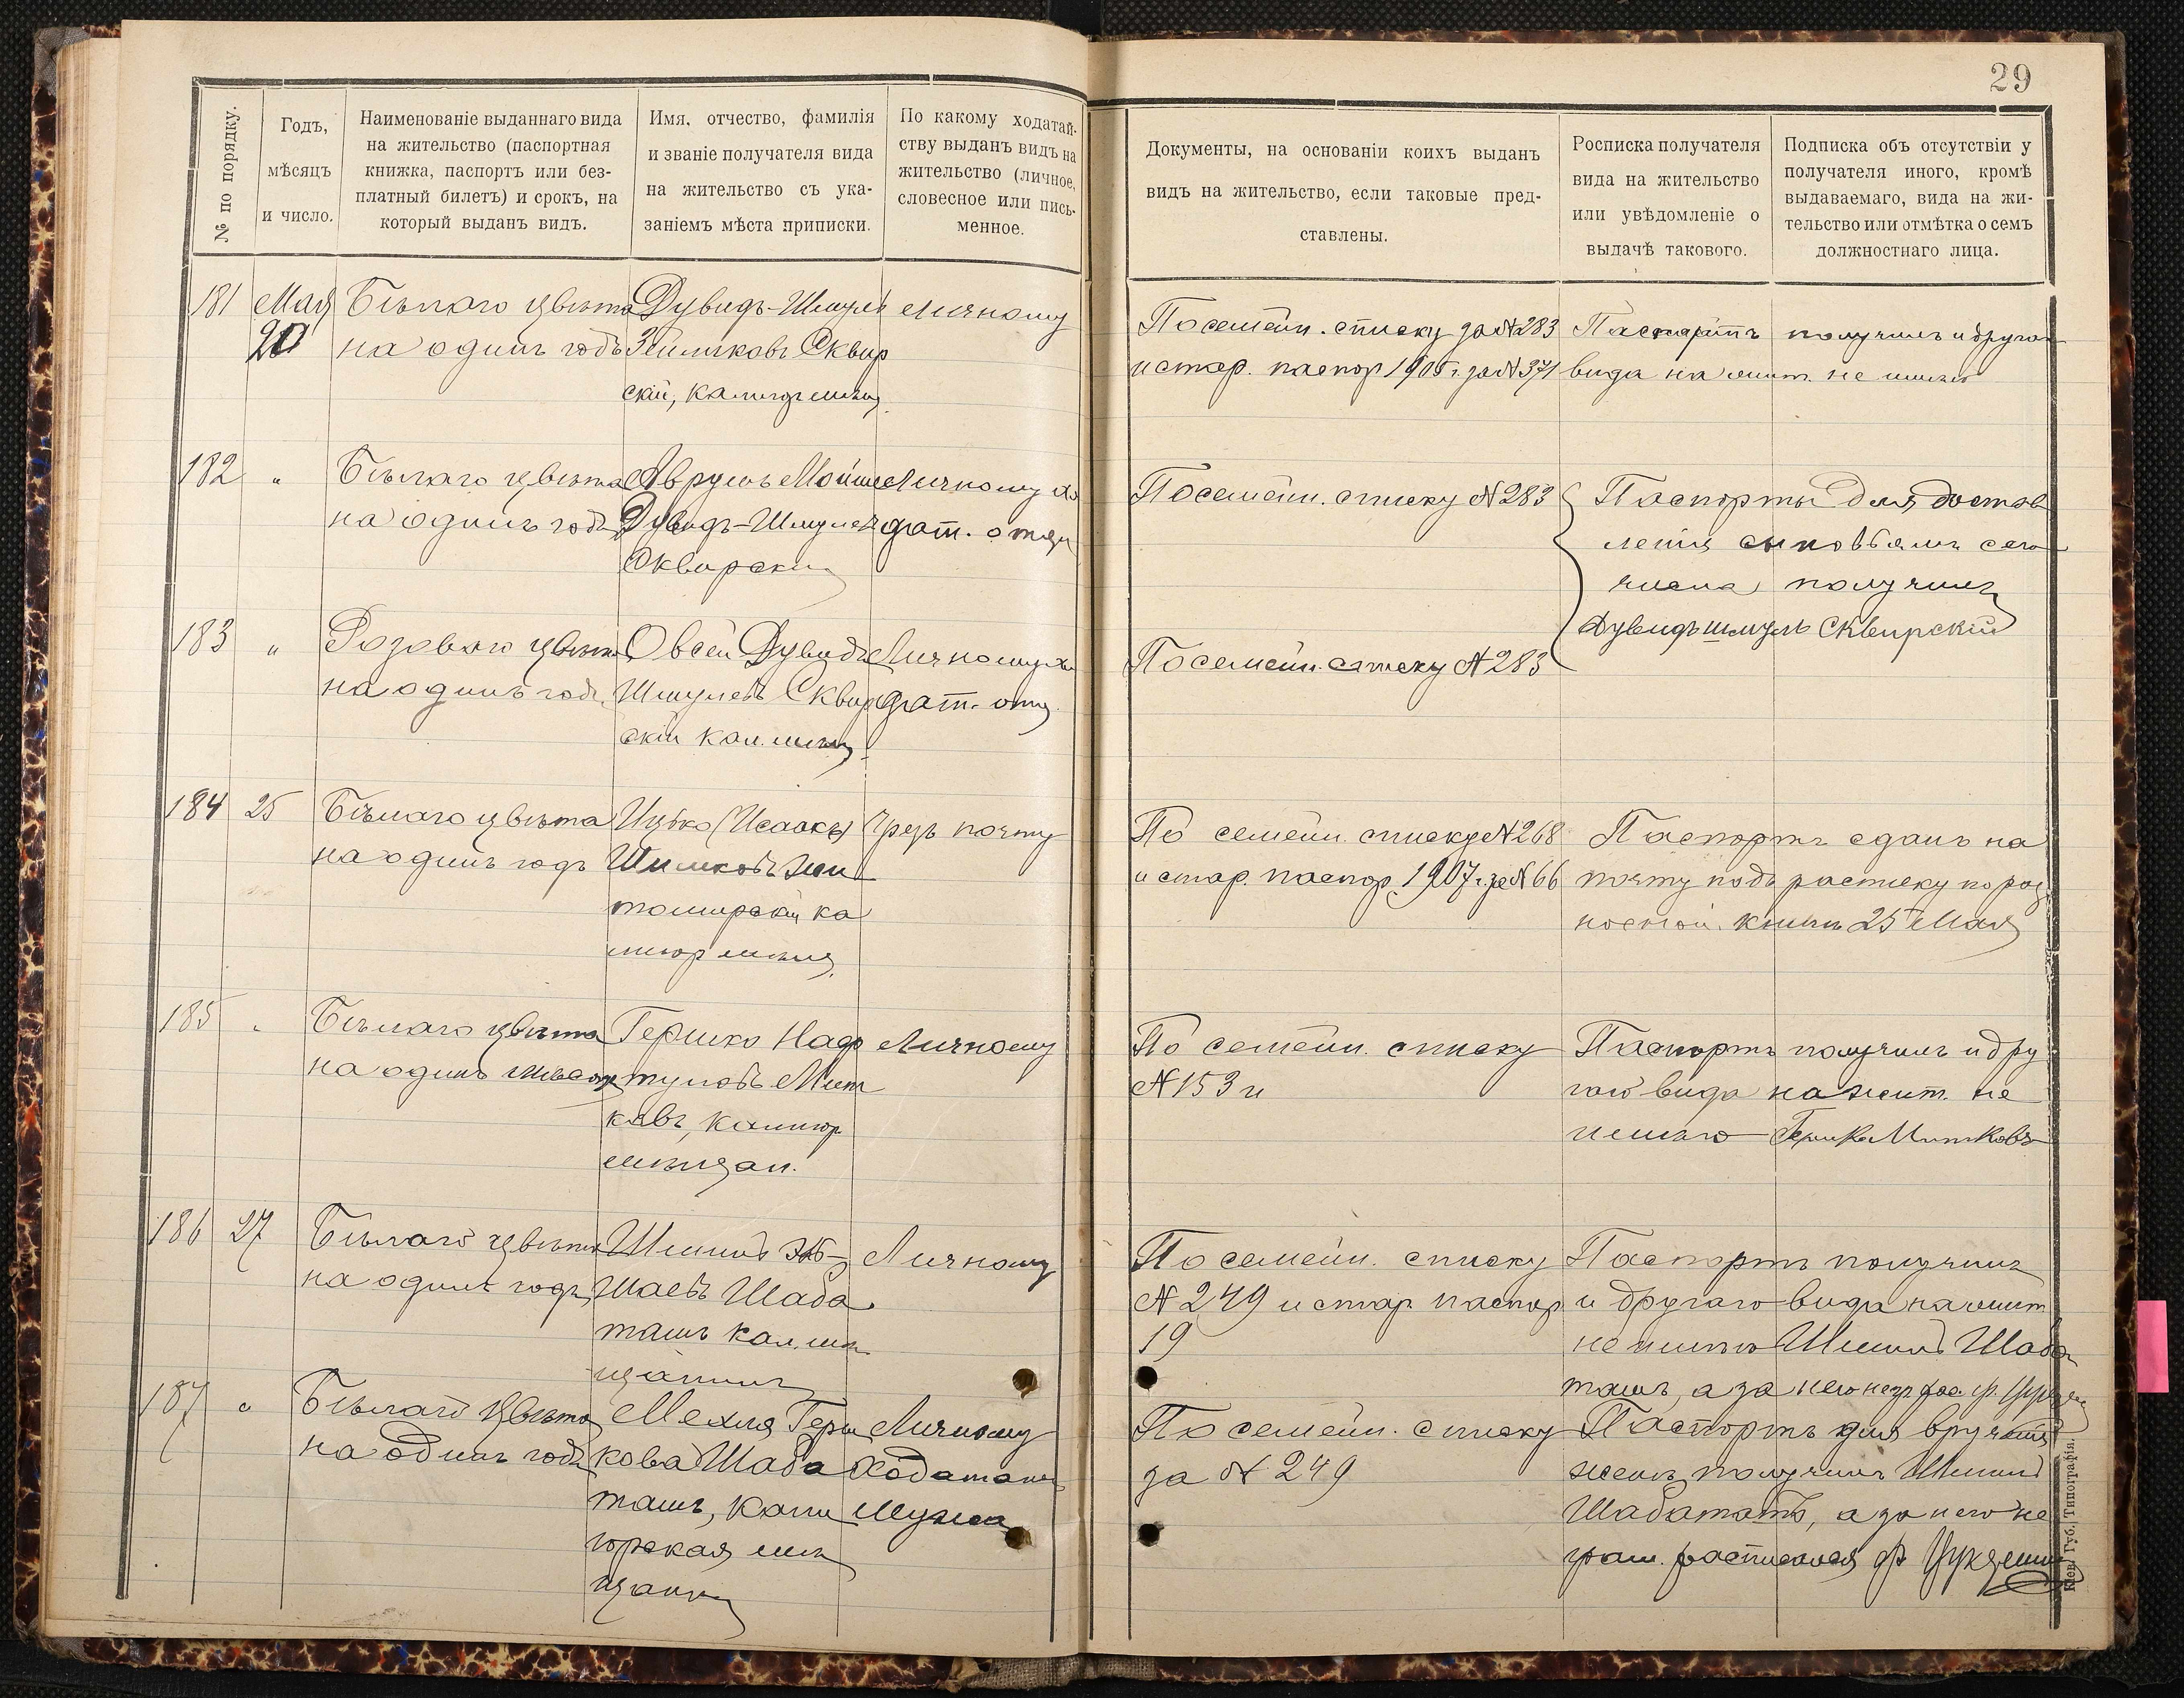 29
№ по порядку.
Годъ,
мѣсяцъ
и число.
Наименованіе выданнаго вида
на жительство (паспортная
книжка, паспортъ или без-
платный билетъ) и срокъ, на
который выданъ видъ.
Имя, отчество, фамилія
и званіе получателя вида
на жительство съ ука-
заніемъ мѣста приписки.
По какому ходатай-
ству выданъ видъ на
жительство (личное,
словесное или пись-
менное.
Документы, на основаніи коихъ выданъ
видъ на жительство, если таковые пред-
ставлены.
Росписка получателя
вида на жительство
или увѣдомленіе о
выдачѣ такового.
Подписка объ отсутствіи у
получателя иного, кромѣ
выдаваемаго, вида на жи-
тельство или отмѣтка о семъ
должностнаго лица.
181
Мая
20
Бѣлаго цвѣта
на одинъ годъ
Дувидъ-Шмуль
Зейликовъ Сквир
скій,
личному
По семейн. списку за № 283
и стар. паспор 190 г. за № 371
Паспортъ получилъ и другого
вида на жит. не имѣю
182
"
Бѣлаго цвѣта
на одинъ годъ
Аврумъ Мойше
Дувидъ-Шмулев
Сквирскій
Личному хо
дат. отца
По семейн. списку № 283
Паспорты для достав
ленія сыновьямъ сего
числа получилъ
Дувидъ Шмуль Сквирскій
183
"
Розоваго цвѣта
на одинъ годъ
Овсей Дувидъ
Шмулевъ Сквир
скій кал. мѣщ
Личному хо
дат. отц
По семейн. списку № 283
184
25
Бѣлаго цвѣта
на одинъ годъ
Ицко (Исаакъ)
Шимковъ Жи
томирскій ка
лигор мѣщ
Чрезъ почту
По семейн. списку № 268
и стар. паспор 1907 г. за № 66
Паспортъ сданъ на
почту подъ расписку по раз
носной книгѣ 25 Мая
185
"
Бѣлаго цвѣта
на одинъ мѣсяцъ
Гершко Наф
туловъ Мит
ковъ, калигор
мѣщан.
Личному
По семейн. списку
№ 153 и
Паспортъ получилъ и дру
гого вида на жит. не
имѣю Гершко Митковъ
186
27
Бѣлаго цвѣта
на одинъ годъ
Шимонъ
Шаевъ Шаба
ташъ кал. мѣ
щанинъ
Личному
По семейн. списку
№ 249 и стар. паспор
19
Паспортъ получилъ
и другаго вида на жит
не имѣю Шимонъ Шаба
ташъ, а за него
187
"
Бѣлаго цвѣта
на одинъ годъ
Мехля Герш
кова Шаба
ташъ, Кали
горская мѣ
щанка
Личному
ходатайств
мужа
По семейн. списку
за № 249
Паспортъ для врученія
женѣ получилъ Шимонъ
Шабаташъ, а за него не
грам. расписался
Кіев. Губ. Типографія.